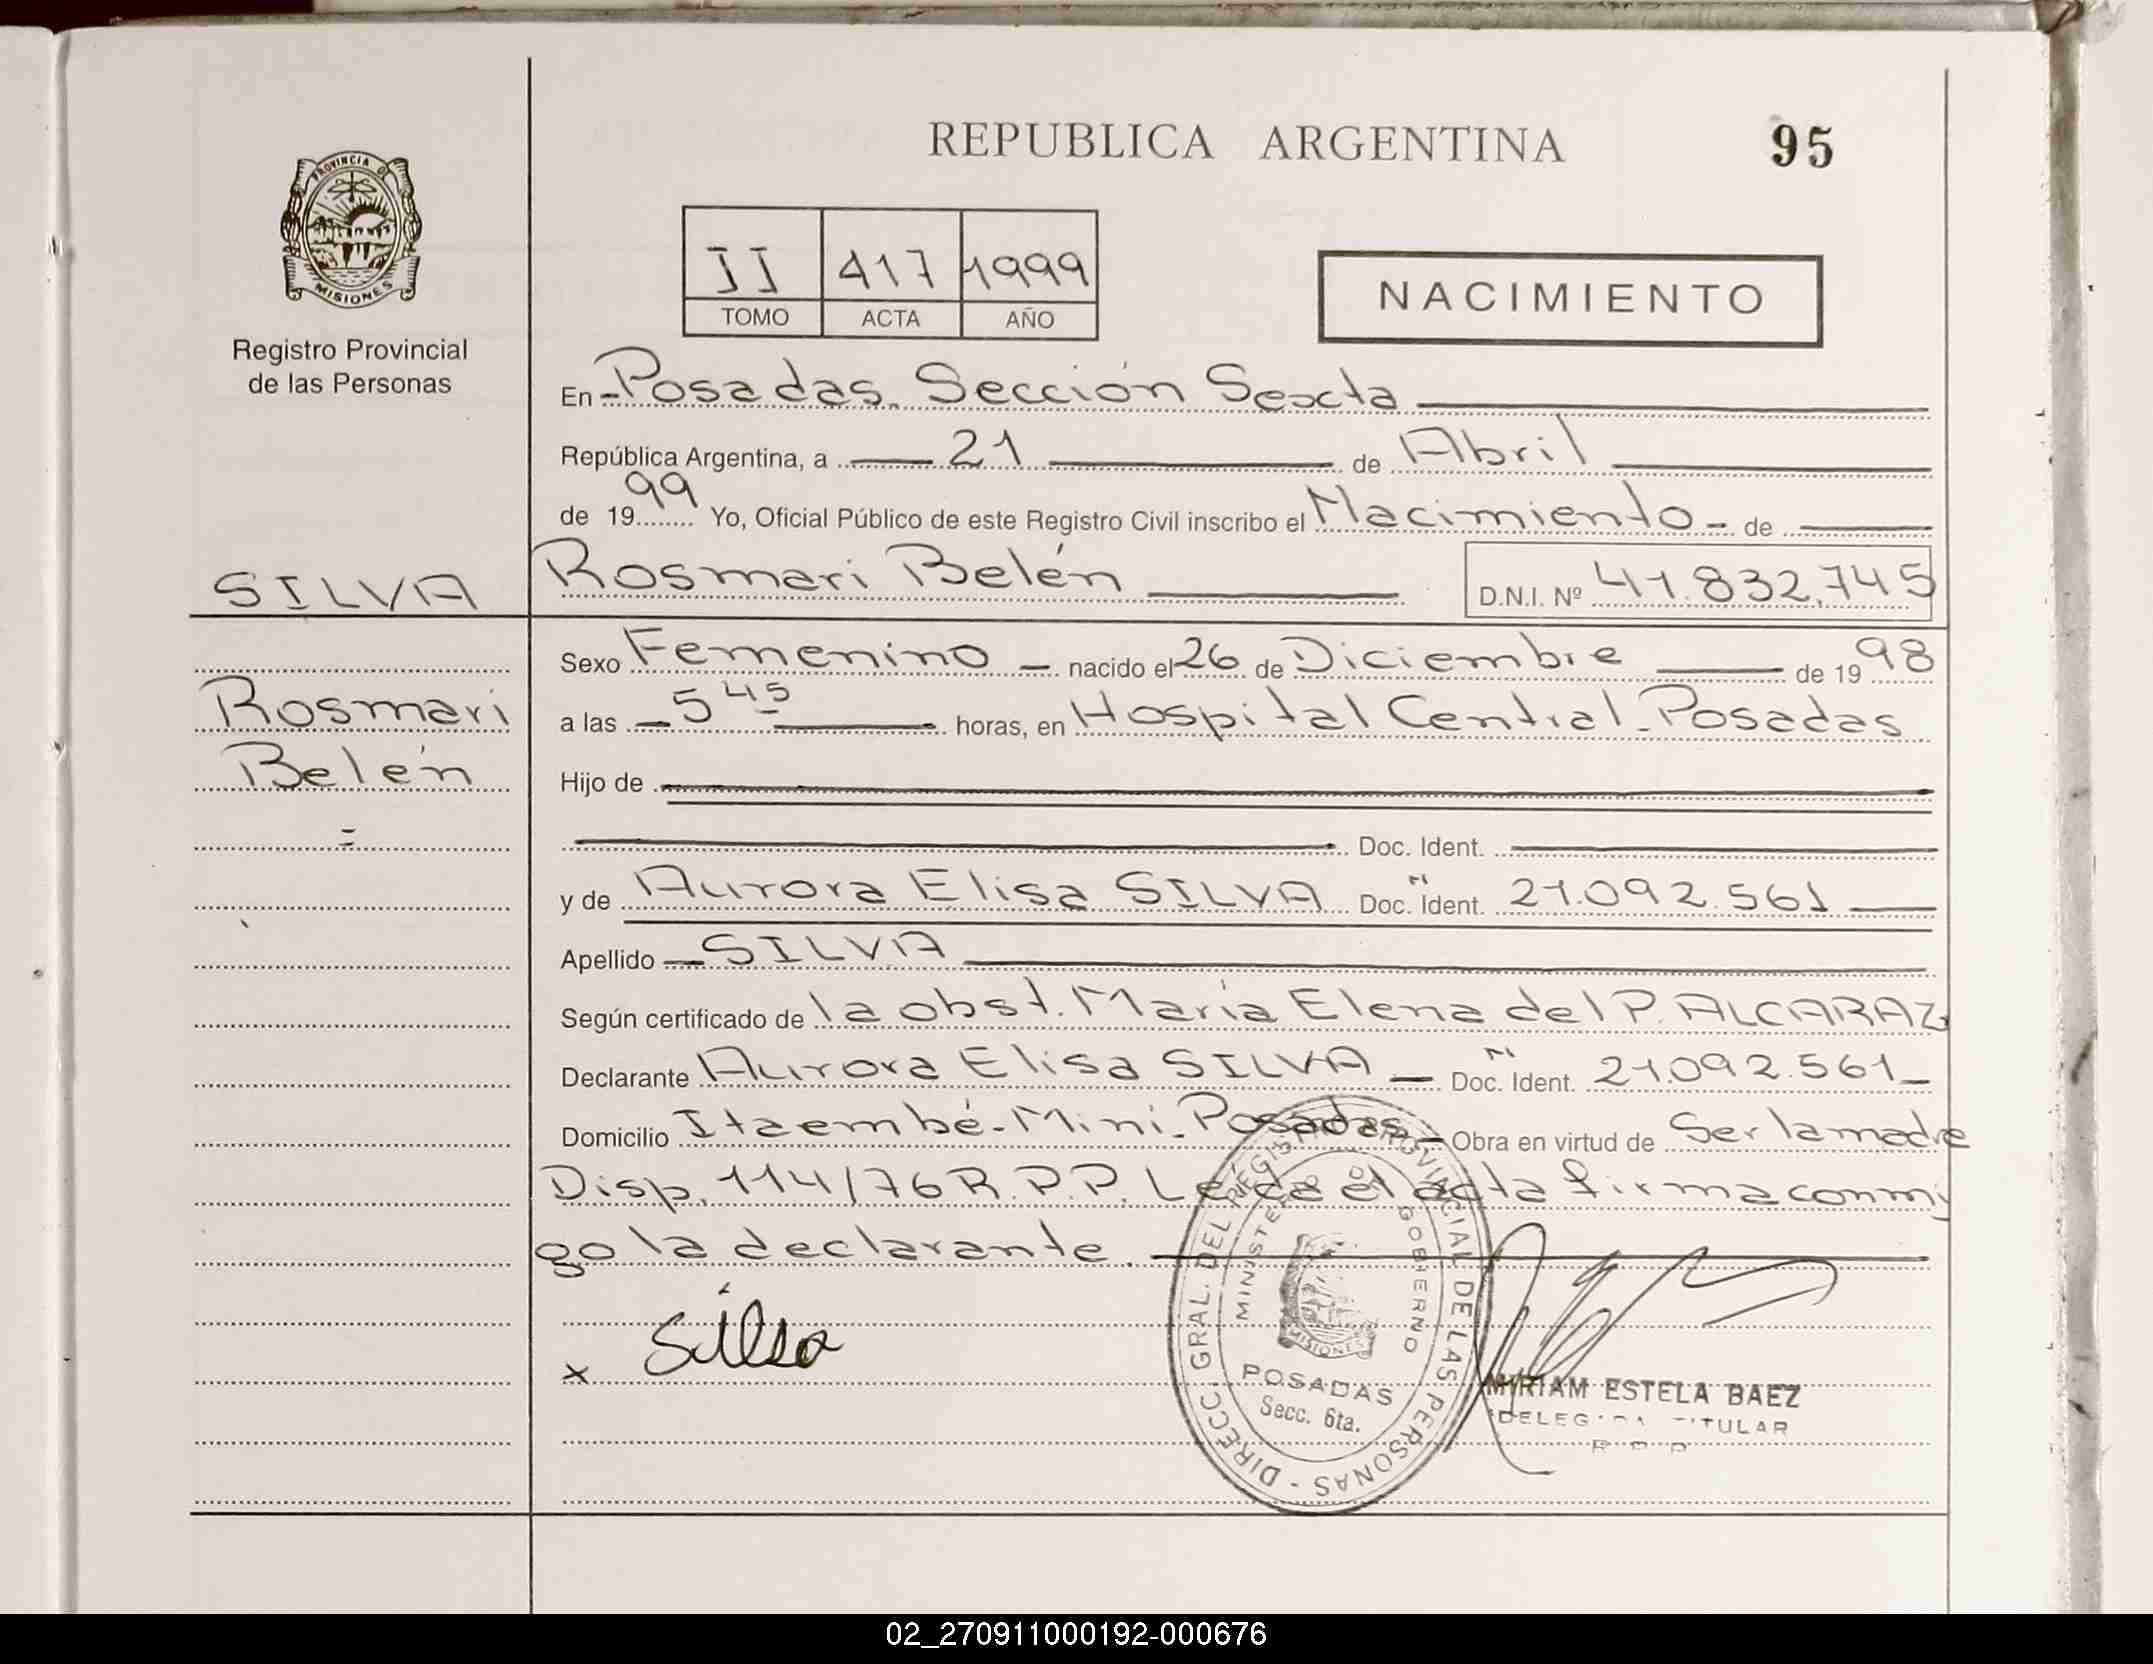 REPUBLICA ARGENTINA
95
PROVINCIA DE MISIONES
Registro Provincial
de las Personas
II 417 1999
TOMO ACTA AÑO
NACIMIENTO
En Posadas. Sección Sexta
República Argentina, a 21 de Abril
de 1999 Yo, Oficial Público de este Registro Civil inscribo el Nacimiento de
SILVA
Rosmari Belén D.N.I. Nº 41.832.745
Rosmari
Belén
Sexo Femenino nacido el 26 de Diciembre de 1998
a las 5 45 horas, en Hospital Central - Posadas
Hijo de
Doc. Ident.
y de Aurora Elisa SILVA Doc. Ident. 21.092.561
Apellido SILVA
Según certificado de la obst. María Elena del P. ALCARAZ
Declarante Aurora Elisa SILVA Doc. Ident. 21.092.561
Domicilio Itaembé - Mini - Posadas Obra en virtud de Ser la madre
Disp. 114/76 R.P.P. Leída el acta firma conmi
go la declarante.
x Silva
DIRECC. GRAL. DEL REGISTRO PROVINCIAL DE LAS PERSONAS -
MINISTERIO DE GOBIERNO
MISIONES
POSADAS
Secc. 6ta.
MIRIAM ESTELA BAEZ
DELEGADA TITULAR
R P P
02_270911000192-000676